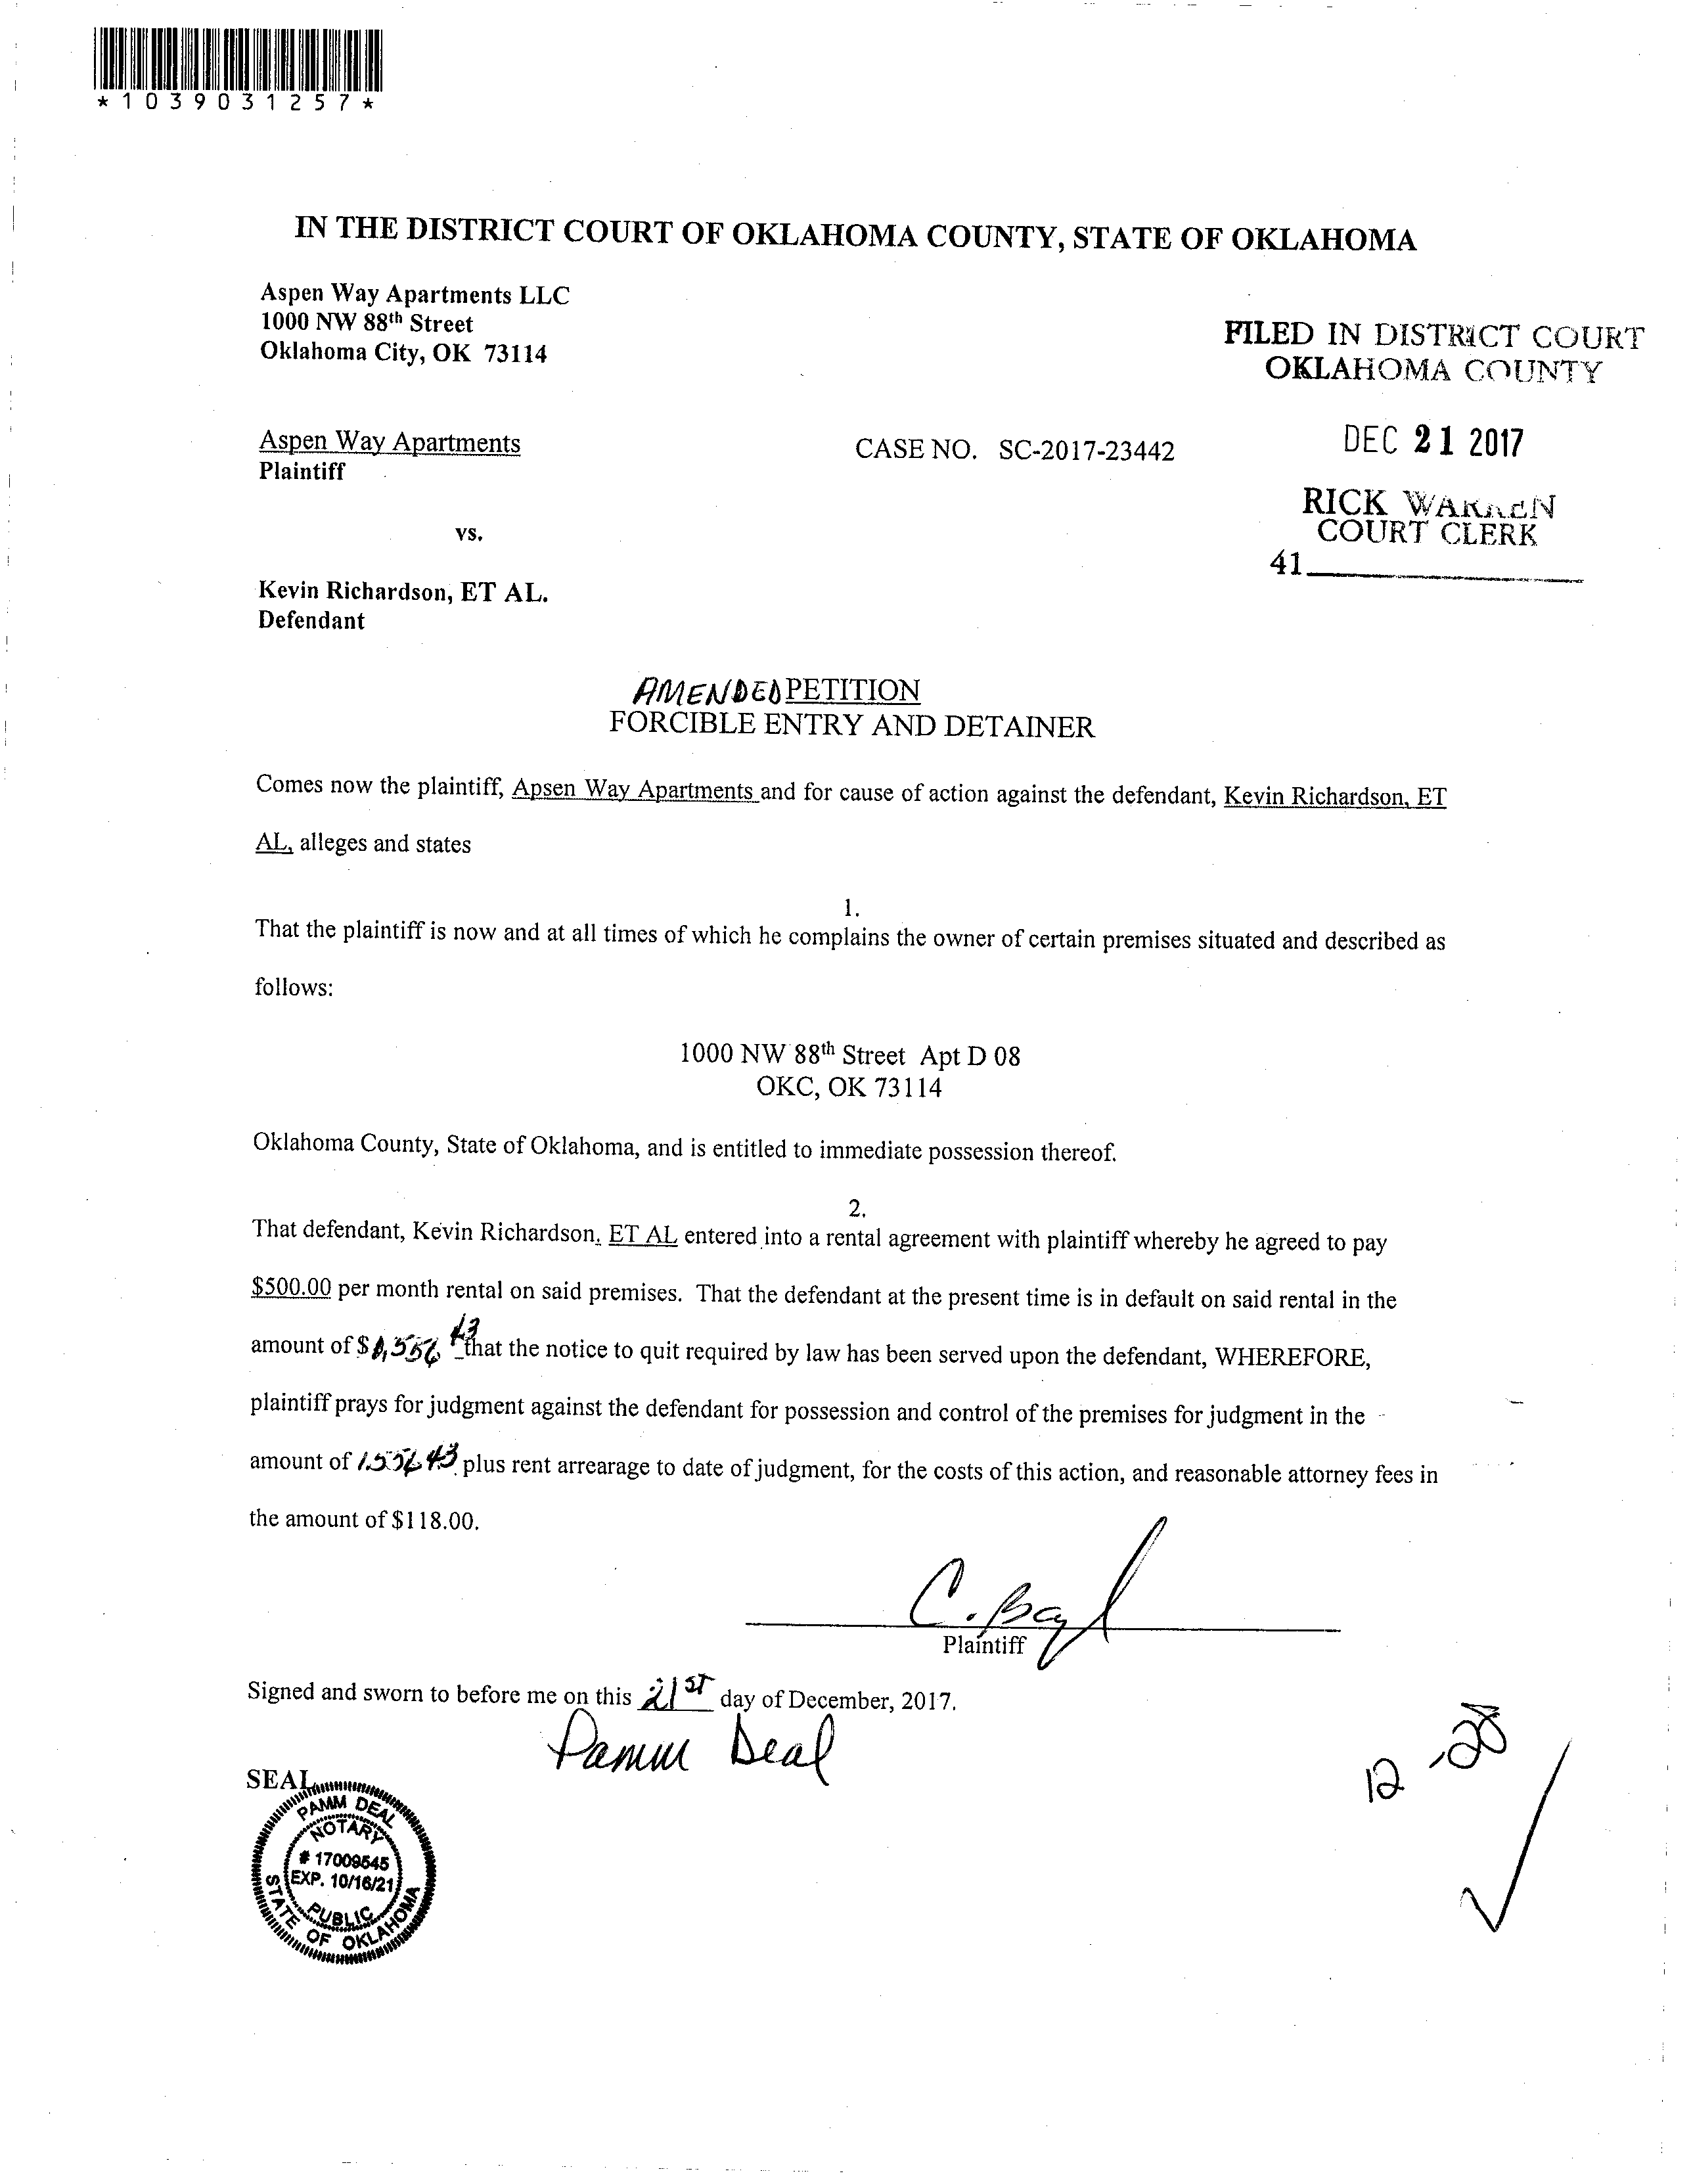 *1039031257*
IN THE DISTRICT COURT OF OKLAHOMA COUNTY, STATE OF OKLAHOMA
Aspen Way Apartments LLC
1000 NW 88th Street
Oklahoma City, OK 73114
FILED IN DISTRICT COURT
OKLAHOMA COUNTY
Aspen Way Apartments
Plaintiff
CASE NO. SC-2017-23442
DEC 21 2017
RICK WARREN
COURT CLERK
41
vs.
Kevin Richardson, ET AL.
Defendant
AMENDED PETITION
FORCIBLE ENTRY AND DETAINER
Comes now the plaintiff, Apsen Way Apartments and for cause of action against the defendant, Kevin Richardson, ET
AL, alleges and states
1.
That the plaintiff is now and at all times of which he complains the owner of certain premises situated and described as
follows:
1000 NW 88th Street Apt D 08
OKC, OK 73114
Oklahoma County, State of Oklahoma, and is entitled to immediate possession thereof.
2.
That defendant, Kevin Richardson, ET AL entered into a rental agreement with plaintiff whereby he agreed to pay
$500.00 per month rental on said premises. That the defendant at the present time is in default on said rental in the
amount of $1,556 43 that the notice to quit required by law has been served upon the defendant, WHEREFORE,
plaintiff prays for judgment against the defendant for possession and control of the premises for judgment in the
amount of 1556 43 plus rent arrearage to date of judgment, for the costs of this action, and reasonable attorney fees in
the amount of $118.00.
Plaintiff
Signed and sworn to before me on this 21ST day of December, 2017.
Pamm Deal
SEAL
PAMM DEAL
NOTARY
# 17009545
EXP. 10/16/21
PUBLIC
STATE OF OKLAHOMA
12-28